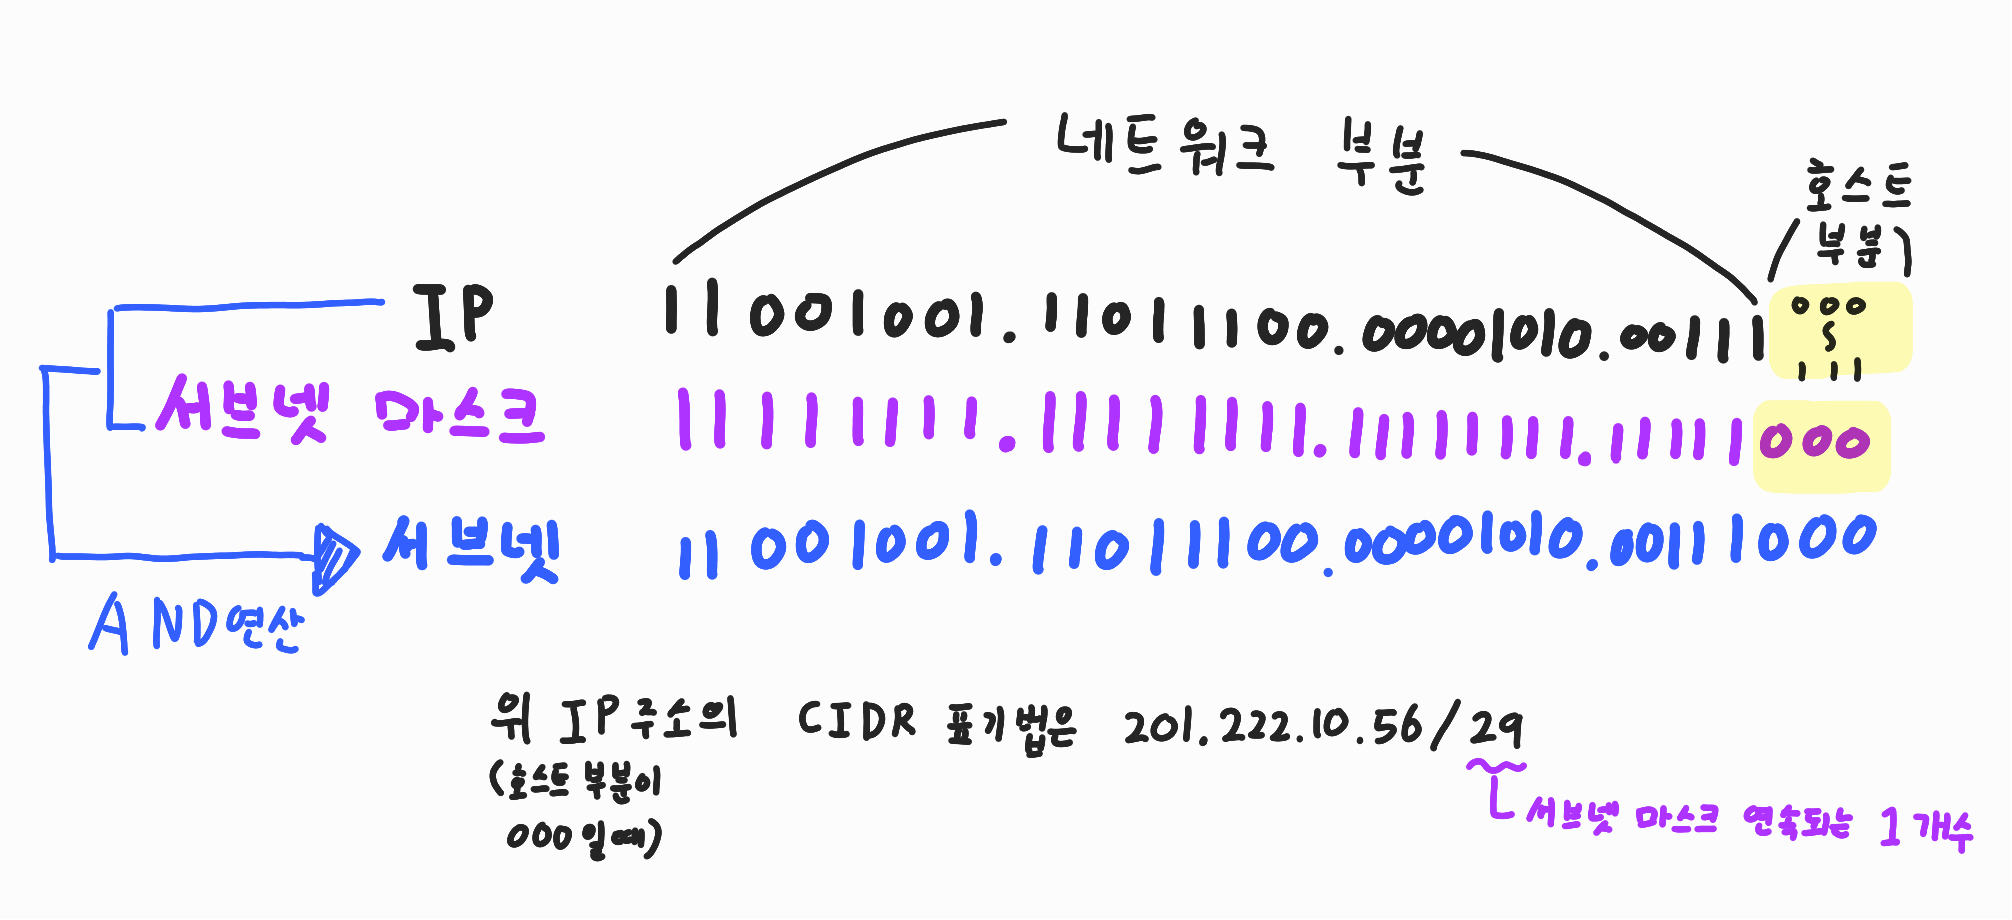 네트워크 부분
호스트
부분
IP 11001001.11011100.00001010.00111 000
~
111
서브넷 마스크 11111111.11111111.11111111.11111000
서브넷 11001001.11011100.00001010.00111000
AND연산
위 IP주소의 CIDR 표기법은 201.222.10.56/29
(호스트 부분이
000일때)
서브넷 마스크 연속되는 1 개수